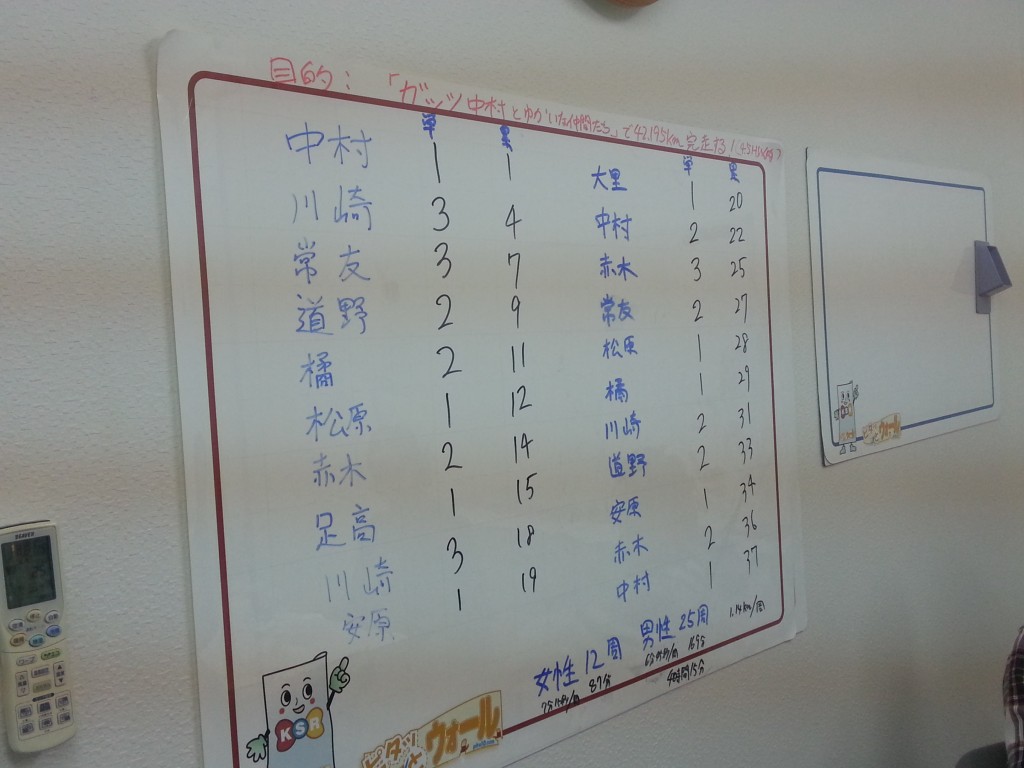 目的：「ガッツ中村とゆかいな仲間たち」で42.195km完走する！
単 累
中村 1 1
川崎 3 4
常友 3 7
道野 2 9
橘 2 11
松原 1 12
赤木 2 14
足高 1 15
川崎 3 18
安原 1 19
単 累
大里 1 20
中村 2 22
赤木 3 25
常友 2 27
松原 1 28
橘 1 29
川崎 2 31
道野 2 33
安原 1 34
赤木 2 36
中村 1 37
1.14km/周
女性 12周 男性 25周
87分 169分
4時間15分
KSR
ピタッ
ウォール